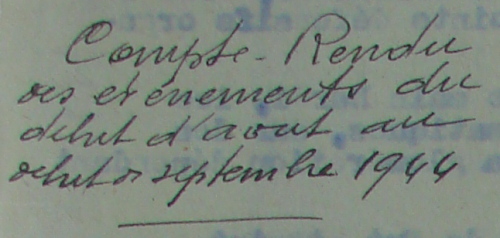 Compte-Rendu
des evenements du
debut d'aout au
debut de septembre 1944